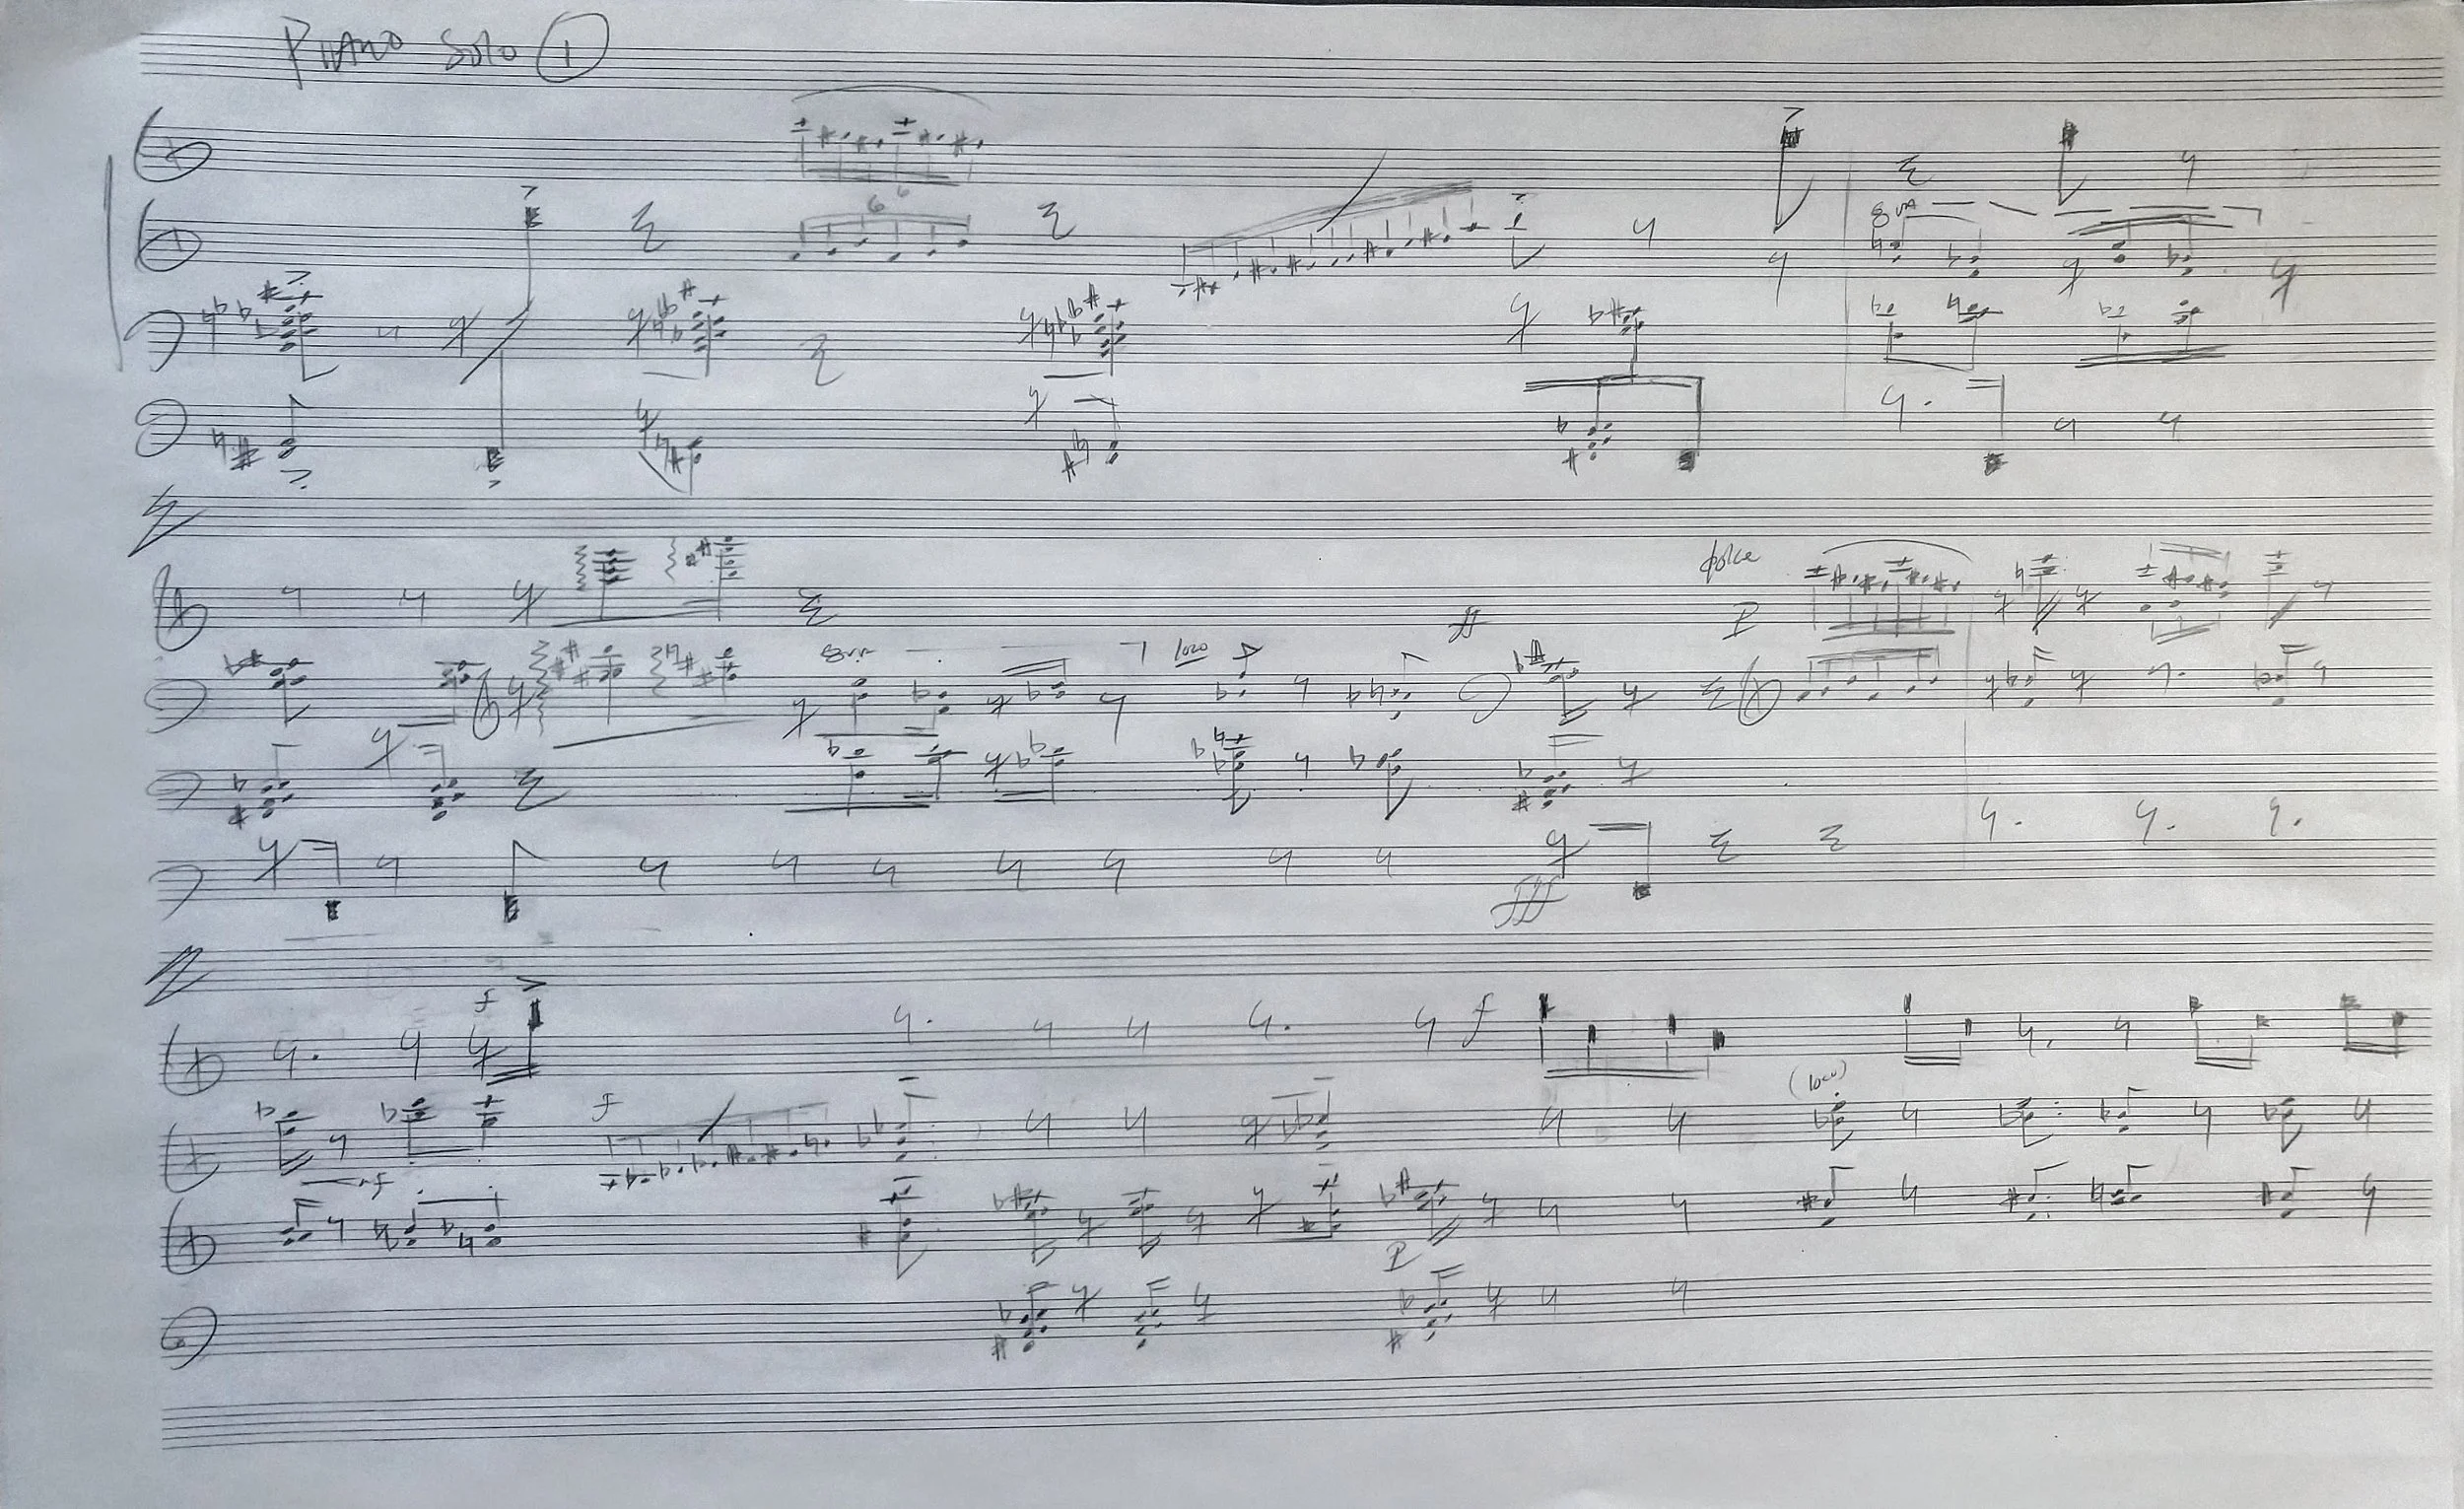 PIANO Solo ①
6 6
8va
dolce
ff P
8va loco
fff
f f
(loco)
f
f
P